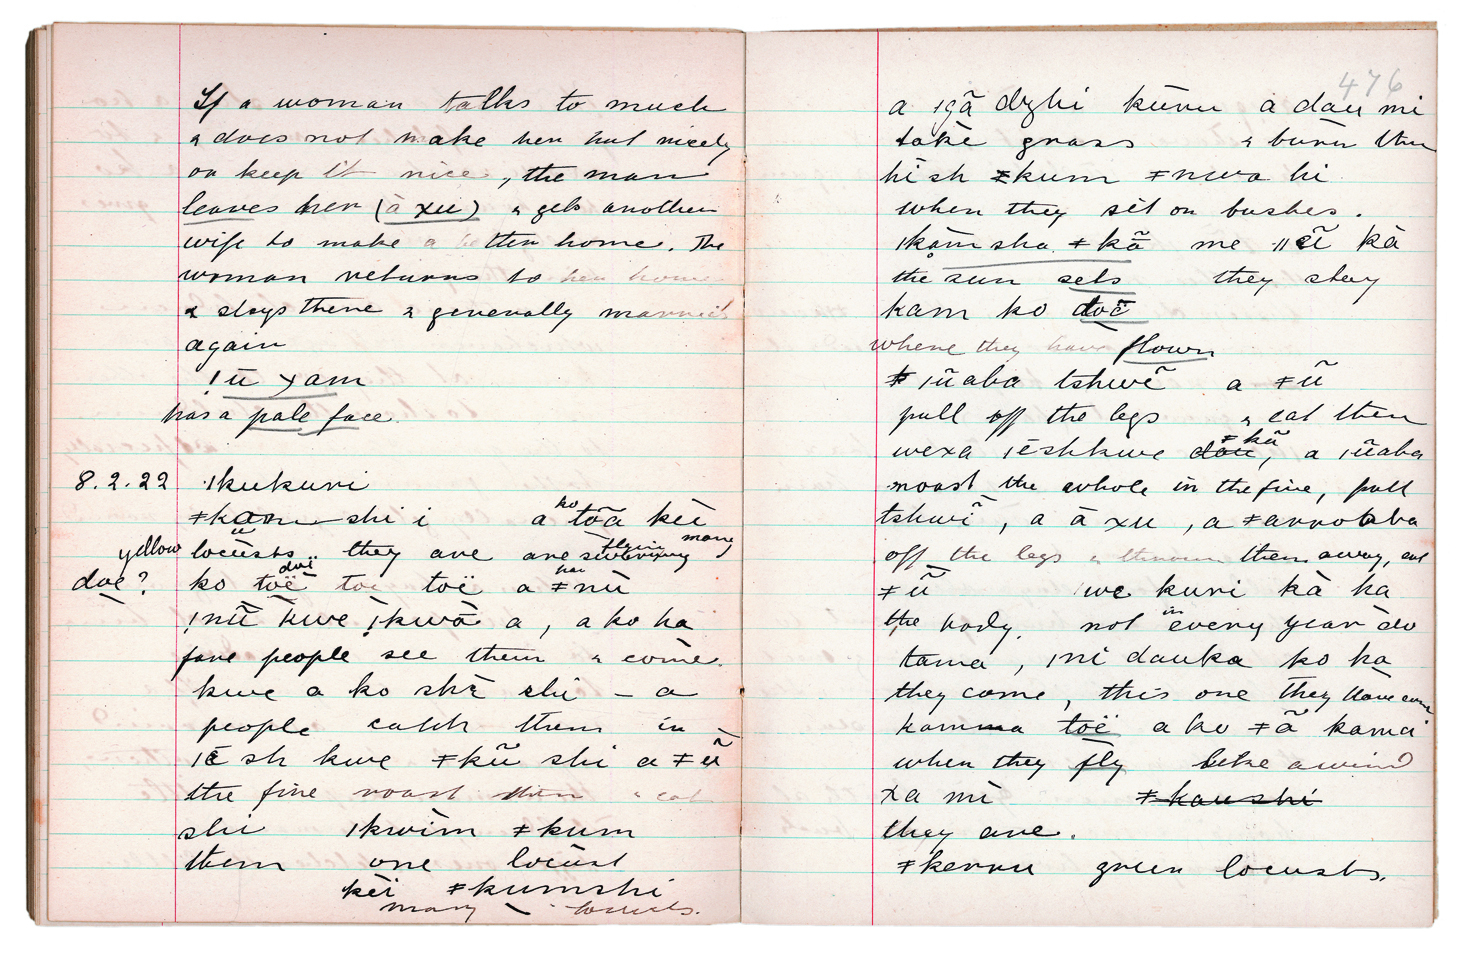 If a woman talks to much
& does not make her hut nicely
or keep it nice, the man
leaves her (ā xu) & gets another
wife to make a better home. The
woman returns to her home
& stays there & generally marries
again
!ū xam
has a pale face.
8.2.22 ǀkukuri
ǂkam shi i a ko tōa kèi
yellow locusts they are are flying many
doe? ko toë doë toe toë a ǂnù
ǃnū kwe ǃkwā a, a ko ha
fare people see them & come.
kwe a ko shē shi – a
people catch them in
ǀē sh kwe ǂkũ shi a ǂũ
the fire roast them & eat
shi ǀkwìm ǂkum
them one locust
kèi ǂkumshi
many locusts.
476
a ǀgã dzhi kūru a dau mi
take grass & burn them
hi sh ǂkum ǂnwa hi
when they sit on bushes.
ǀkạ̄m sha ǂkã me ǁũ kà
the sun sets they stay
kam ko doë
where they have flown
ǀũaba tshwẽ a ǂũ
pull off the legs & eat them
wexa ǀēshkwe dau ǂkũ, a ǀũaba
roast the whole in the fire, pull
tshwĩ, a ā xu, a ǂarroba
off the legs & throw them away, eat
ǂũ we kuri kà ha
the body. not in every year do
tama, ǀni dauka ko ha
they come, this one they have come
kamma toë a ko ǂã kama
when they fly like a wind
xa mì ǂkaushi
they are.
ǂkerru green locusts.